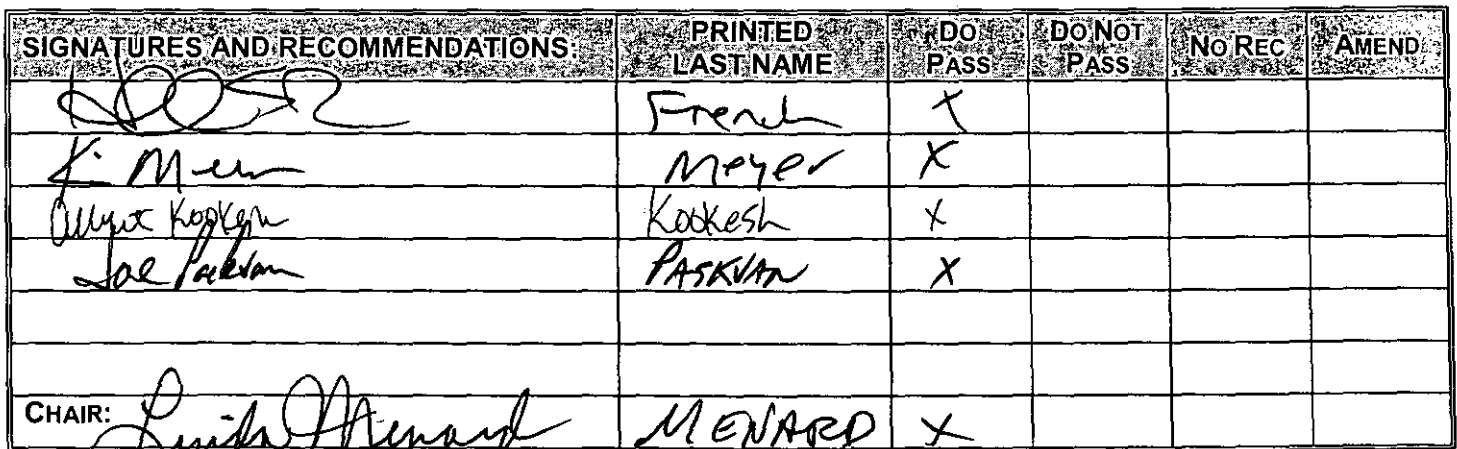 SIGNATURES AND RECOMMENDATIONS: PRINTED LAST NAME DO PASS DO NOT PASS NO REC AMEND
French X
Meyer X
Kookesh X
Joe Paskvan PASKVAN X
CHAIR: Linda Menard MENARD X